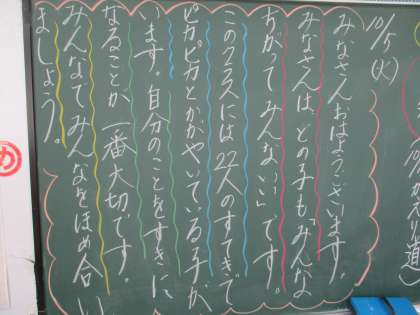 10/5(火)
みなさんおはようございます。
みなさんは、どの子も「みんな
ちがってみんないい」です。
このクラスには22人のすてきで
ピカピカとかがやいている子が
います。自分のことをすきに
なることが一番大切です。
みんなでみんなをほめ合い
ましょう。
め